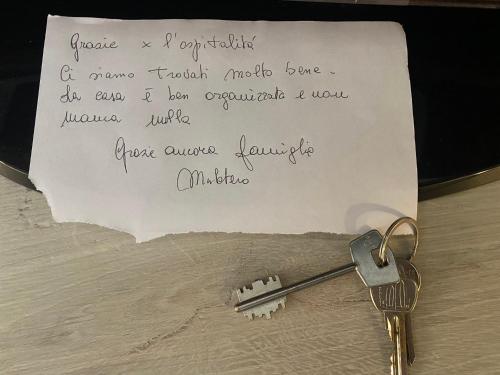 Grazie x l'ospitalità
Ci siamo trovati molto bene.
La casa è ben organizzata e non
manca nulla
Grazie ancora famiglia